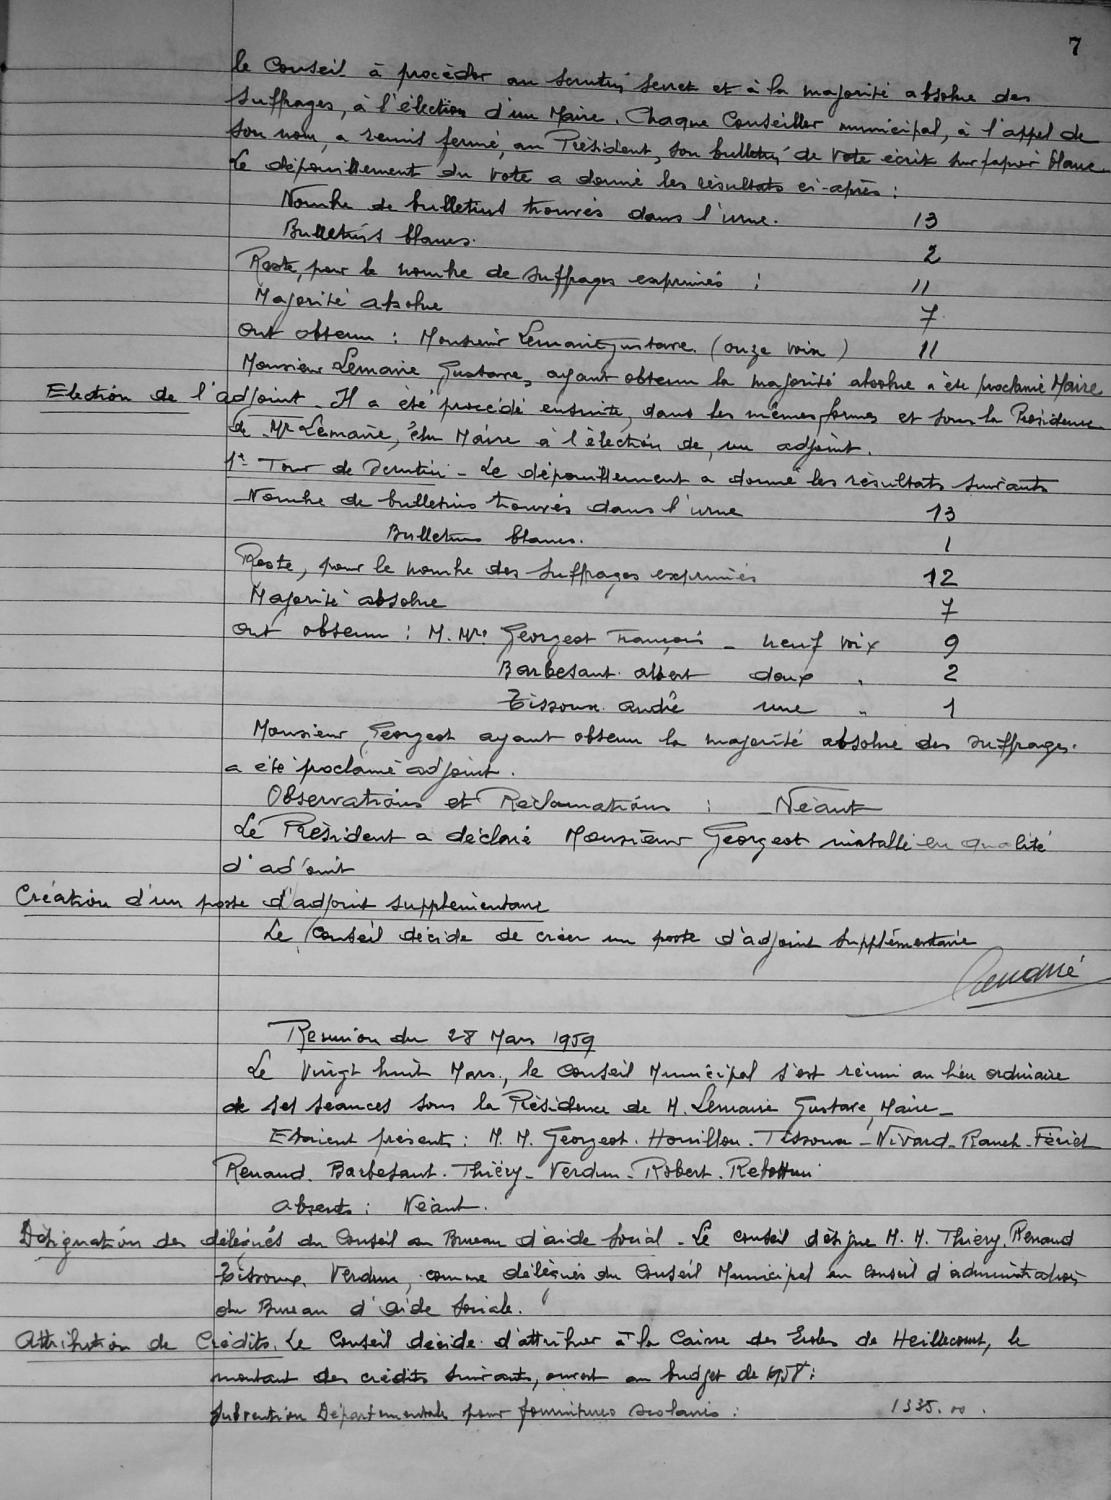 7
le Conseil à procéder au scrutin secret et à la majorité absolue des
suffrages, à l'élection d'un Maire. Chaque Conseiller municipal, à l'appel de
son nom, a remis fermé, au Président, son bulletin de vote écrit sur papier blanc.
Le dépouillement du vote a donné les résultats ci-après :
Nombre de bulletins trouvés dans l'urne. 13
Bulletins blancs. 2
Reste, pour le nombre de suffrages exprimés : 11
Majorité absolue 7
Ont obtenu : Monsieur Lemaire Gustave. (onze voix) 11
Monsieur Lemaire Gustave, ayant obtenu la majorité absolue a été proclamé Maire
Election de l'adjoint Il a été procédé ensuite, dans les mêmes formes et sous la Présidence
de Mr Lemaire, élu Maire à l'élection de, un adjoint.
1er Tour de Scrutin - Le dépouillement a donné les résultats suivants
Nombre de bulletins trouvés dans l'urne 13
Bulletins blancs. 1
Reste, pour le nombre des suffrages exprimés 12
Majorité absolue 7
Ont obtenu : M. Mrs Georgeot François - neuf voix 9
Barbesant albert deux " 2
Tissoux andré une " 1
Monsieur Georgeot ayant obtenu la majorité absolue des suffrages.
a été proclamé adjoint.
Observations et Réclamations : Néant
Le Président a déclaré Monsieur Georgeot installé en qualité
d'adjoint
Création d'un poste d'adjoint supplémentaire
Le Conseil décide de créer un poste d'adjoint supplémentaire
Réunion du 28 Mars 1959
Le Vingt huit Mars, le Conseil Municipal s'est réuni au lieu ordinaire
de ses séances sous la Présidence de M. Lemaire Gustave, Maire -
Etaient présents : M. M. Georgeot. Houillon. Tissoux - Nivard - Ranch - Fériet
Renaud. Barbesant. Thiéry - Verdun - Robert.
Absents : Néant.
Désignation des délégués du Conseil au Bureau d'aide social - Le conseil désigne M. M. Thiéry. Renaud
Tissoux. Verdun, comme délégués du Conseil Municipal au Conseil d'administration
du Bureau d'aide sociale.
Attribution de Crédits. Le Conseil décide d'attribuer à la Caisse des Ecoles de Heillecourt, le
montant des crédits suivants, ouvert au budget de 1958 :
Subvention Départementale pour fournitures scolaires : 1335.00.